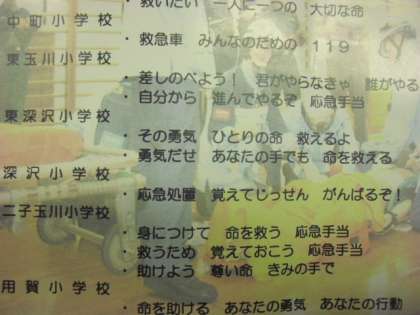 ・ 救いたい 一人に一つの 大切な命
中町小学校
・ 救急車 みんなのための 119
東玉川小学校
・ 差しのべよう! 君がやらなきゃ 誰がやる
・ 自分から 進んでやるぞ 応急手当
東深沢小学校
・ その勇気 ひとりの命 救えるよ
・ 勇気だせ あなたの手でも 命を救える
深沢小学校
・ 応急処置 覚えてじっせん がんばるぞ!
二子玉川小学校
・ 身につけて 命を救う 応急手当
・ 救うため 覚えておこう 応急手当
・ 助けよう 尊い命 きみの手で
用賀小学校
・ 命を助ける あなたの勇気 あなたの行動